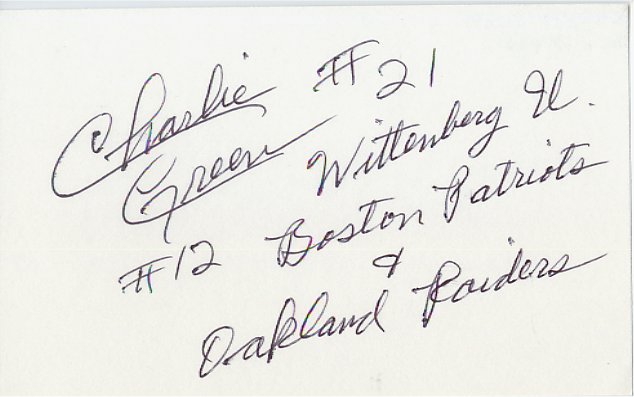 Charlie #21
Green Wittenberg U.
#12 Boston Patriots
&
Oakland Raiders